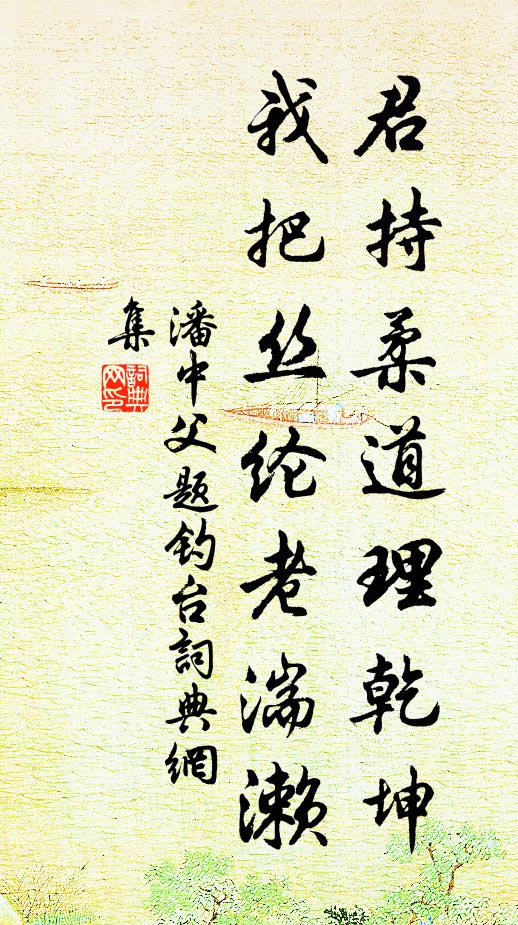 君持柔道理乾坤
我把丝纶老湍濑
潘中父题钓台詞典網
集
詞典
网印